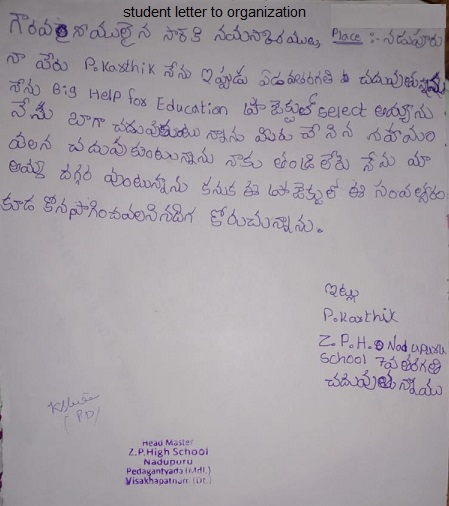 student letter to organization
గౌరవనీయులైన సార్ కి నమస్కారములు Place :- నడుపూరు
నా పేరు P.Karthik నేను ఇప్పుడు ఏడవతరగతి చదువుతున్నాను
నేను Big Help for Education ప్రాజెక్టులో select అయ్యాను
నేను బాగా చదువుకుంటున్నాను మీరు చేసిన సహాయం
వలన చదువుకుంటున్నాను నాకు తండ్రి లేడు నేను మా
అమ్మ దగ్గర వుంటున్నాను కనుక ఈ ప్రాజెక్టులో ఈ సంవత్సరం
కూడ కొనసాగించవలసినదిగ కోరుచున్నాను.
ఇట్లు
P.Karthik
Z.P.H. Nadupuru
School 7వ తరగతి
చదువుతున్నాను
(PD)
Head Master
Z.P.High School
Nadupuru
Pedagantyada (Mdl.)
Visakhapatnam (Dt.)